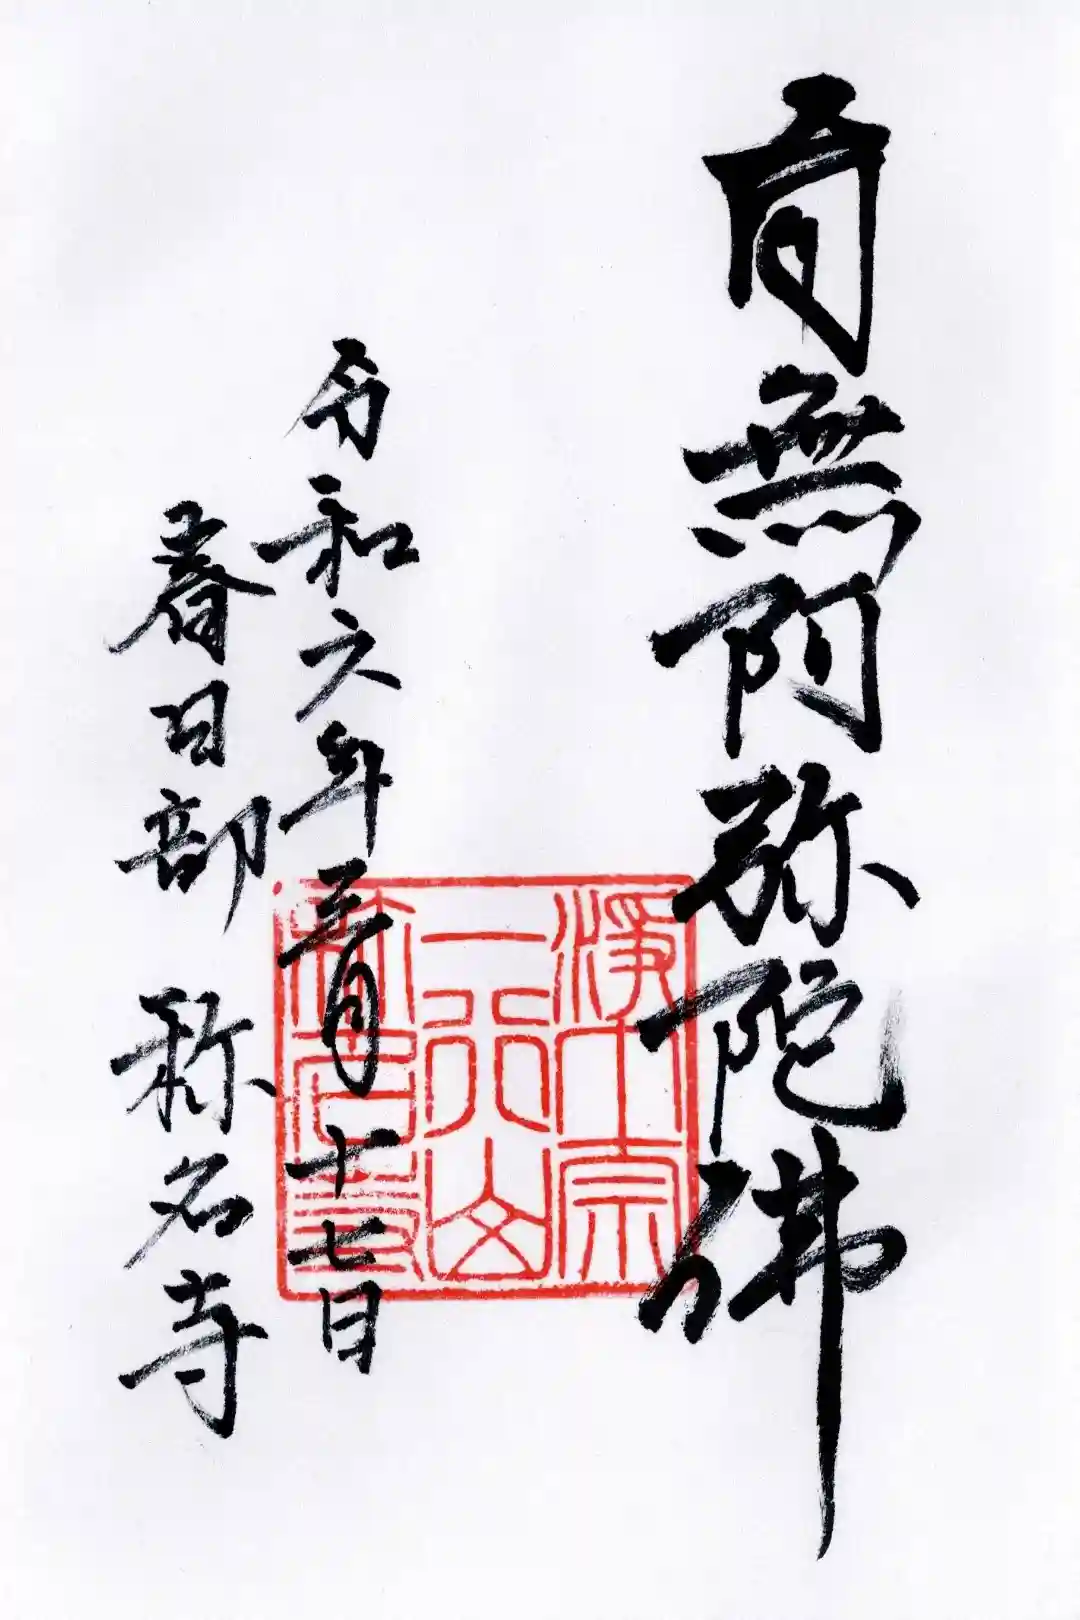 南無阿弥陀佛
令和六年三月十七日
春日部 称名寺
浄土宗
一行山
称名寺